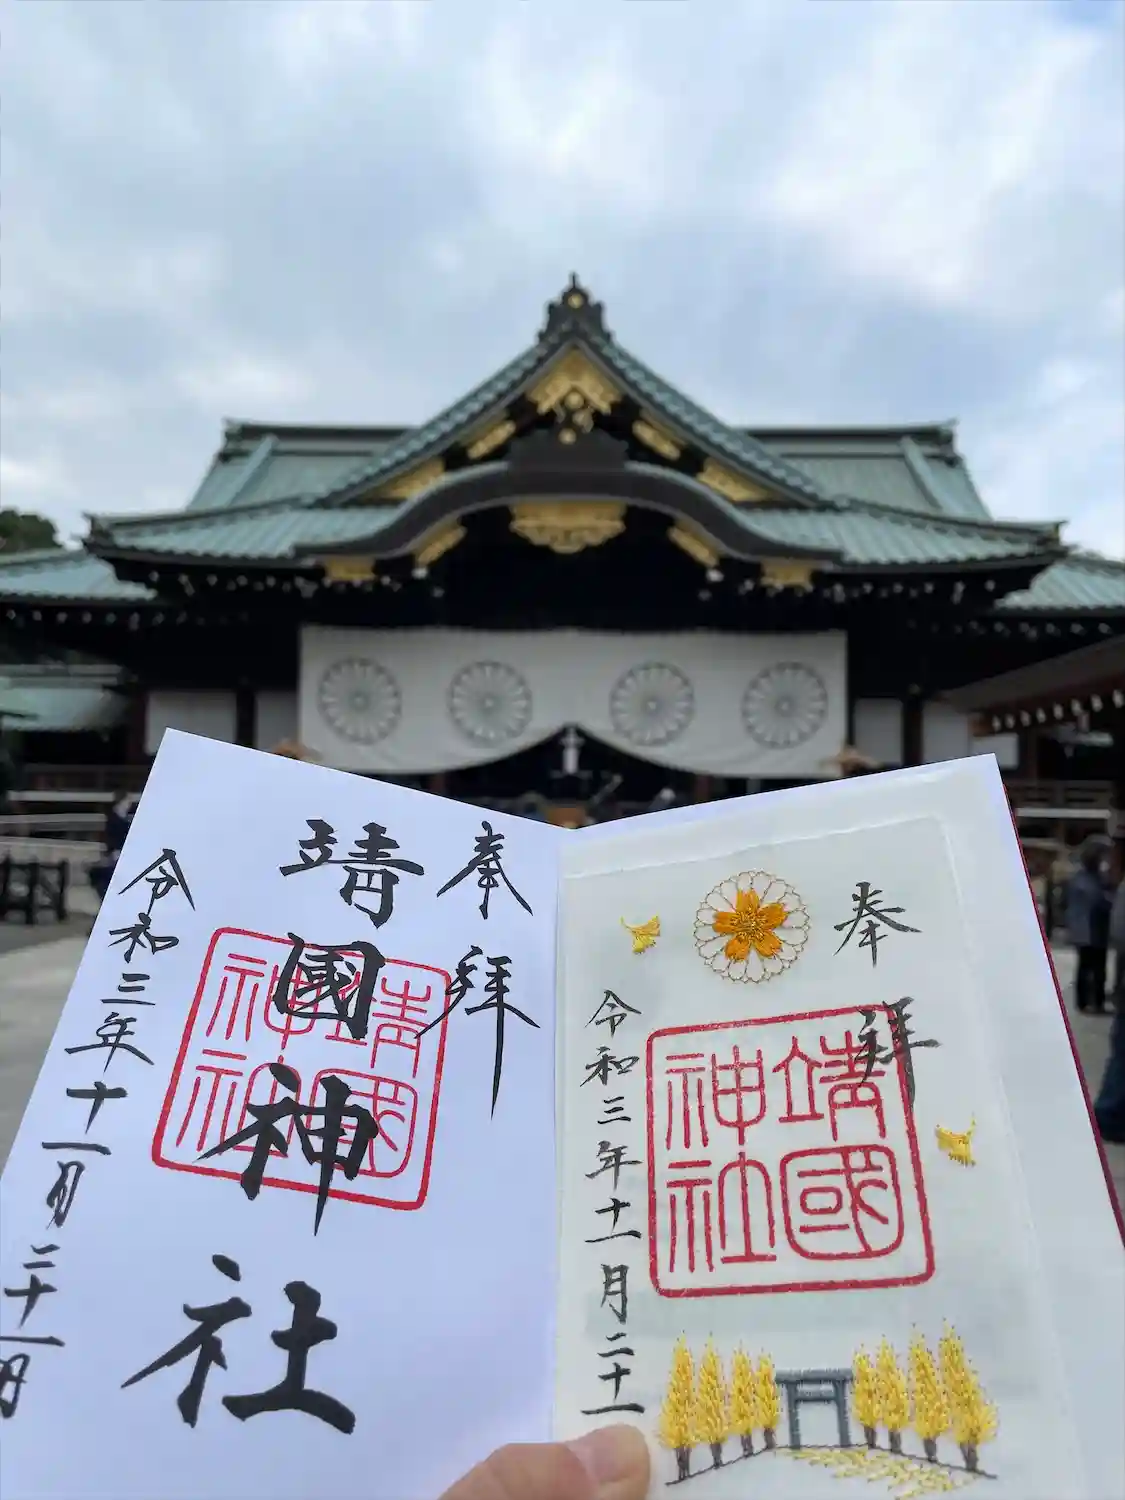 奉拜
靖國神社
靖國神社
令和三年十一月二十一日
奉拜
靖國神社
令和三年十一月二十一